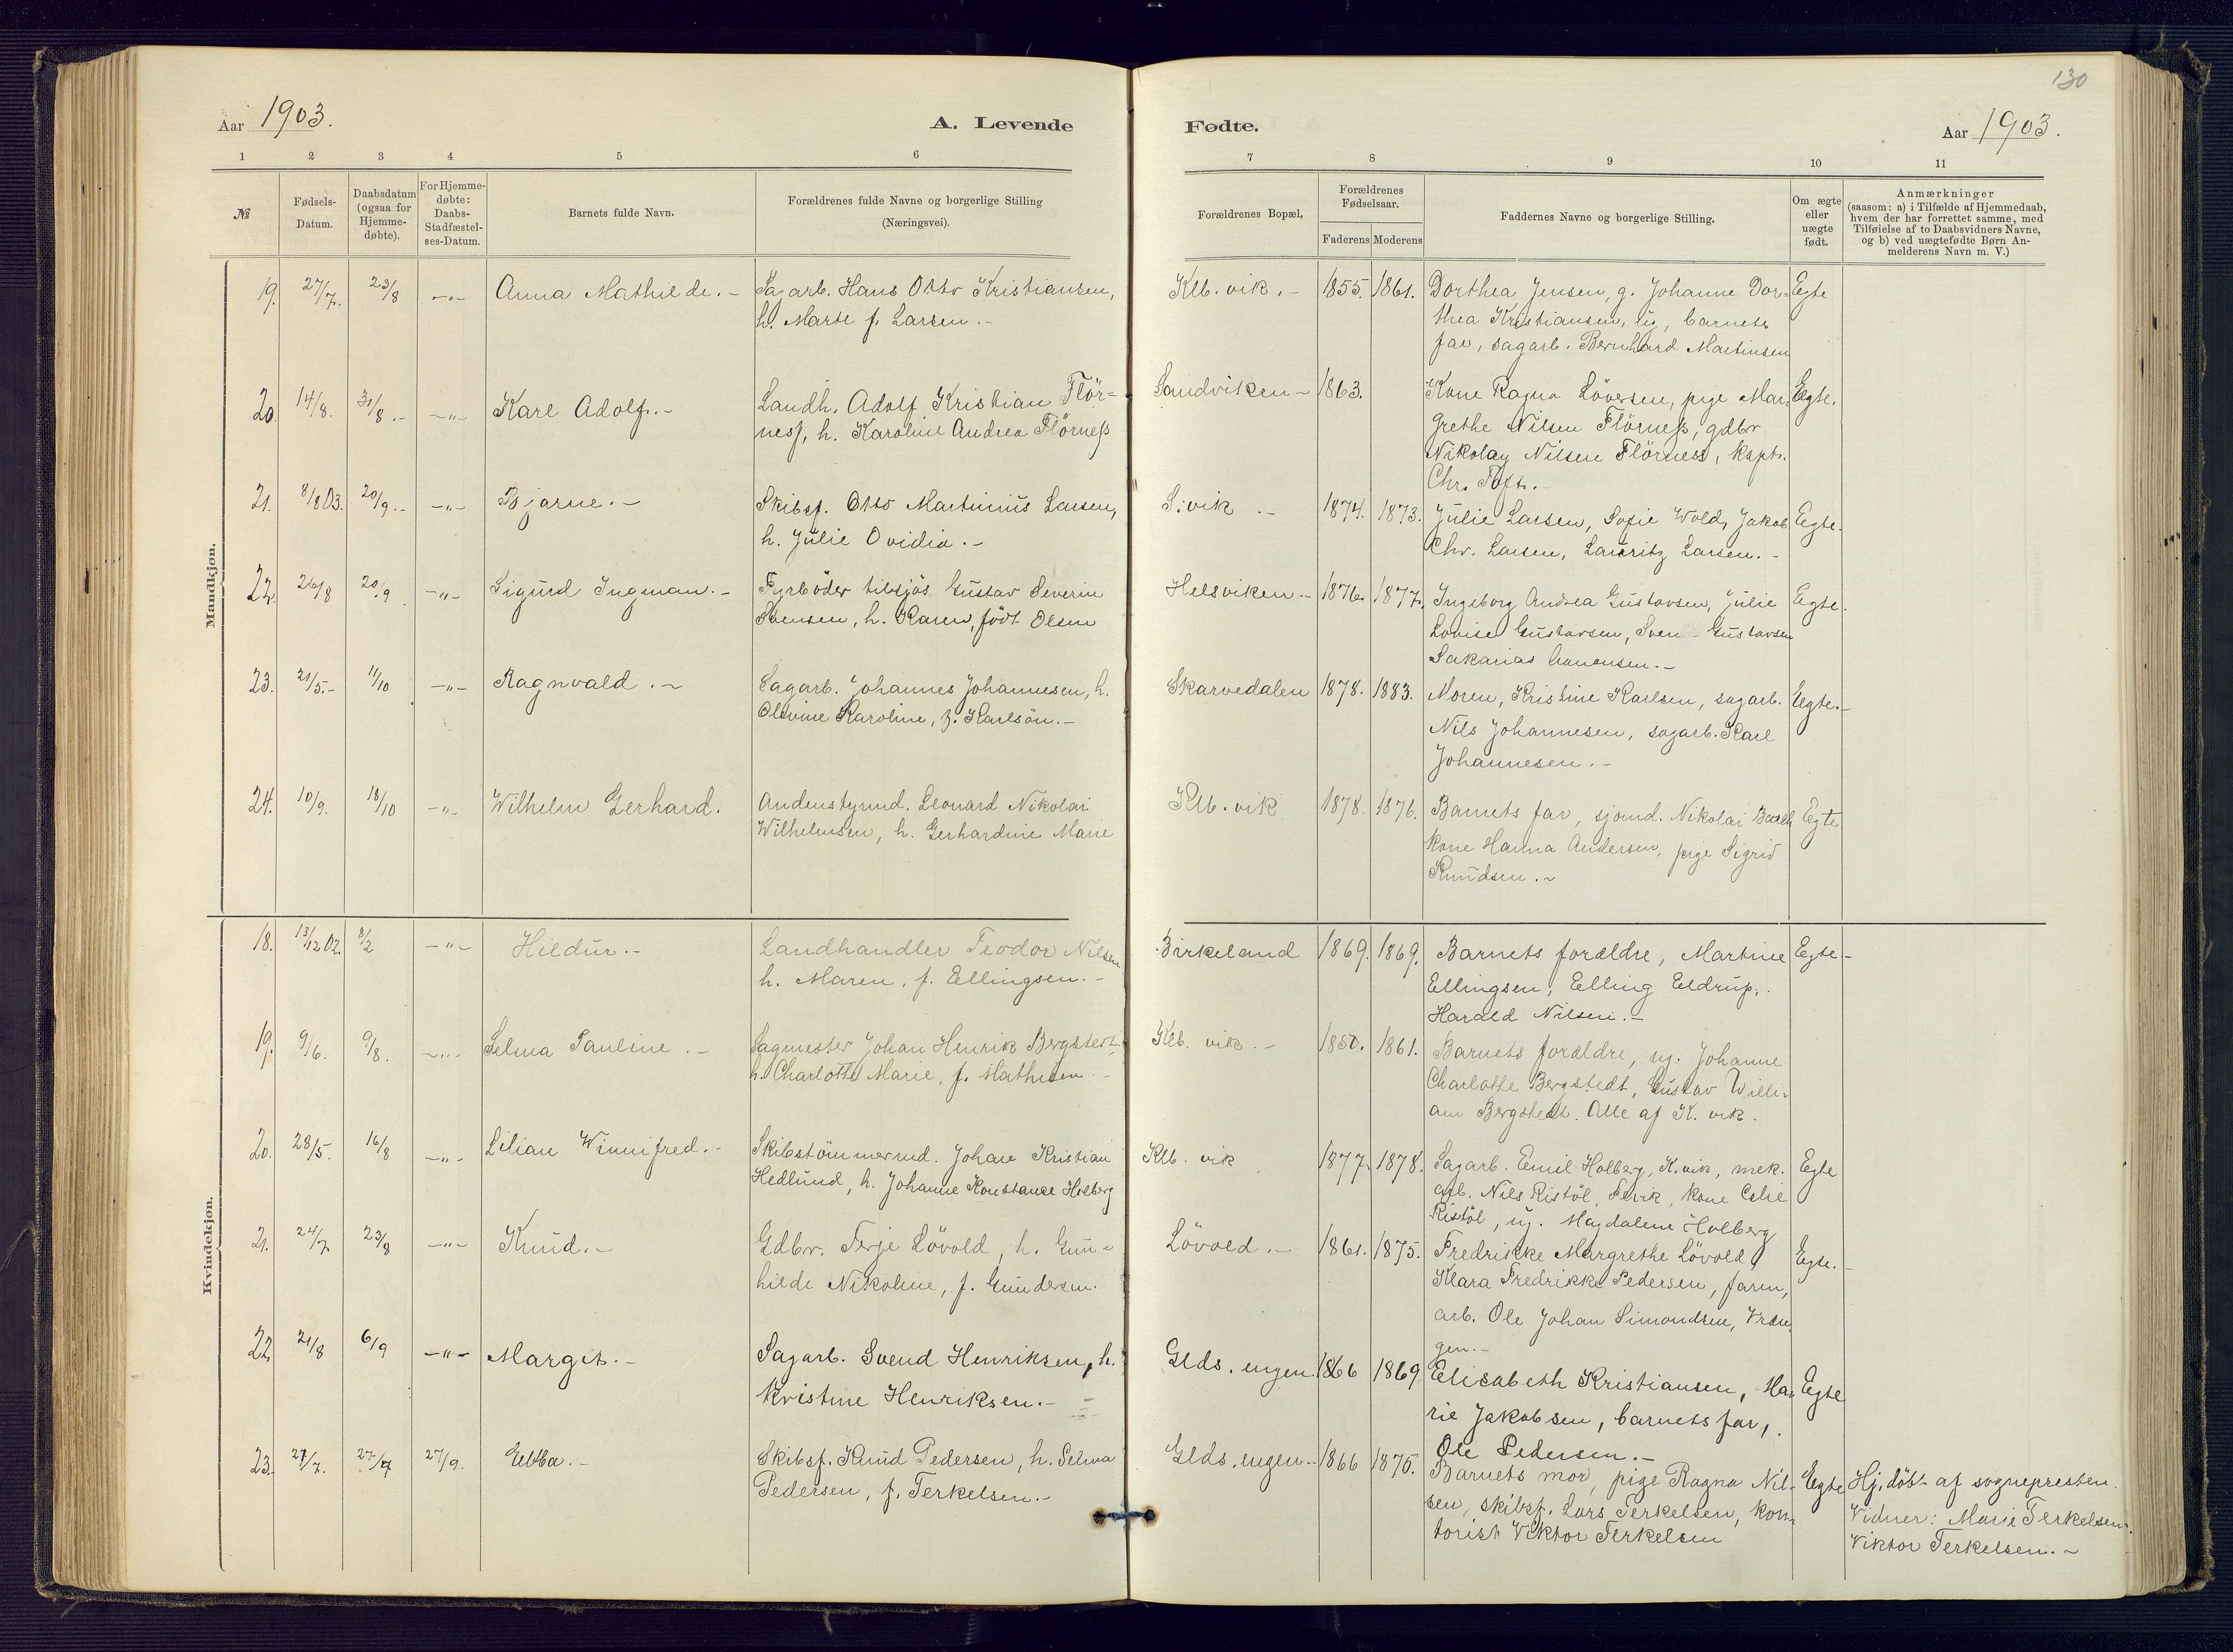 130
Aar 1903. A. Levende Fødte. Aar 1903.
1 2 3 4 5 6 7 8 9 10 11
№
Fødsels-
Datum.
Daabsdatum
(ogsaa for
Hjemme-
døbte).
For Hjemme-
døbte:
Daabs-
Stadfæstel-
ses-Datum.
Barnets fulde Navn.
Forældrenes fulde Navne og borgerlige Stilling
(Næringsvei).
Forældrenes Bopæl.
Forældrenes
Fødselsaar.
Faderens Moderens
Faddernes Navne og borgerlige Stilling.
Om ægte
eller
uægte
født.
Anmærkninger
(saasom: a) i Tilfælde af Hjemmedaab,
hvem der har forrettet samme, med
Tilføielse af to Daabsvidners Navne,
og b) ved uægtefødte Børn An-
melderens Navn m. V.)
Mandkjøn.
19. 27/7. 23/8 -"- Anna Mathilde.- Sagarb. Hans Otto Kristiansen, Klb.vik.- 1855. 1861. Dorthea Jensen, g. Johanne Dor- Egte
h. Marte f. Larsen.- thea Kristiansen, ug, barnets
far, sagarb. Bernhard Martinsen
20. 14/8. 31/8.- -"- Karl Adolf.- Landh. Adolf Kristian Flör= Sandviken- 1863. Kone Ragna Löversen, pige Mar- Egte.
ness, h. Karoline Andrea Flörness grethe Nilsen Flörness, gdbr
Nikolay Nilsen Flörness, kapt.
Chr. Toft.-
21. 8/8 03. 20/9.- -"- Bjarne.- Skibsf. Otto Martinius Larsen, S.vik.- 1874. 1873. Julie Larsen, Sofie Wold, Jakob Egte.
h. Julie Ovidia.- Chr. Larsen, Lauritz Larsen.-
22. 26/8 20/9 -"- Sigurd Ingman.- Fyrböder tilsjös Gustav Severin Helsviken- 1876. 1877. Ingeborg Andrea Gustavsen, Julie Egte.
Svensen, h. Karen, født Olsen Lovise Gustavsen, Sven Gustavsen
Sakarias
23. 21/5.- 11/10 -"- Ragnvald.- Sagarb. Johannes Johannesen, h. Skarvedalen 1878. 1883. Moren, Kristine Karlsen, sagarb. Egte.-
Olevine Karoline, f. Karlsön.- Nils Johannesen, sagarb. Karl
Johannesen.-
24. 10/9. 18/10 -"- Wilhelm Gerhard. Andenstyrmd. Leonard Nikolai Klb.vik 1878. 1876. Barnets far, sjömd. Nikolai Egte
Wilhelmsen, h. Gerhardine Marie kone Hanna Andersen, pige Sigrid
Knudsen.-
Kvindekjøn.
18. 13/12 02. 8/2 -"- Hildur.- Landhandler Teodor Nilsen Birkeland 1869. 1869. Barnets forældre, Martine Egte-
h. Maren, f. Ellingsen.- Ellingsen, Elling Eldrup,
Harald Nilsen.-
19. 9/6. 9/8. -"- Selma Pauline.- Sagmester Johan Henrik Bergstedt, Klb. vik.- 1850. 1861. Barnets forældre, ug. Johanne
h. Charlotte Marie, f. Mathisen.- Charlotte Bergstedt, Gustav Willi-
am Bergstedt. Alle af K. vik.
20. 28/5. 16/8 -"- Lilian Winnifred.- Skibstömmermd. Johan Kristian Klb. vik 1877. 1878. Sagarb. Emil Holberg, K.vik, mek. Egte
Hedlund, h. Johanne Konstance Holberg arb. Nils Ristöl, kone
Ristöl, ug. Magdalene Holberg
21. 24/7. 23/8 -"- Knud.- Gdbr. Terje Lövold, h. Gun- Lövold.- 1861. 1875. Fredrikke Margrethe Lövold, Egte.-
hilde Nikoline, f. Gundersen. Klara Fredrikke Pedersen, faren,
arb. Ole Johan Simondsen, Vran-
gen.-
22. 21/8 6/9 -"- Margit.- Sagarb. Svend Henriksen, h. Glds. engen 1866 1869 Elisabeth Kristiansen, Ma- Egte
Kristine Henriksen.- rie Jakobsen, barnets far,
Ole Pedersen.-
23.- 27/7. 27/7 27/9. Ebba.- Skibsf. Knud Pedersen, h. Selma Glds. engen.- 1866 1875. Barnets mor, pige Ragna Nil- Egte Hj. döbt af sognepresten.
Pedersen, f. Terkelsen.- sen, skibsf. Lars Terkelsen, kon- Vidner: Marie Terkelsen.
torist Viktor Terkelsen Viktor Terkelsen.-